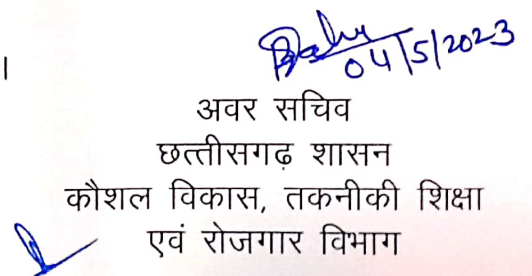 ।
04/5/2023
अवर सचिव
छत्तीसगढ़ शासन
कौशल विकास, तकनीकी शिक्षा
एवं रोजगार विभाग